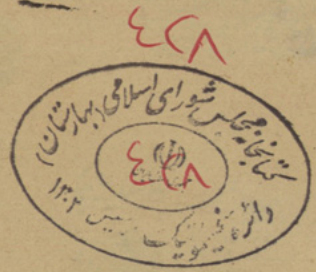 ٤٢٨
کتابخانه مجلس شورای اسلامی (بهارستان)
٤٢٨
دائره
۱۳۰۲